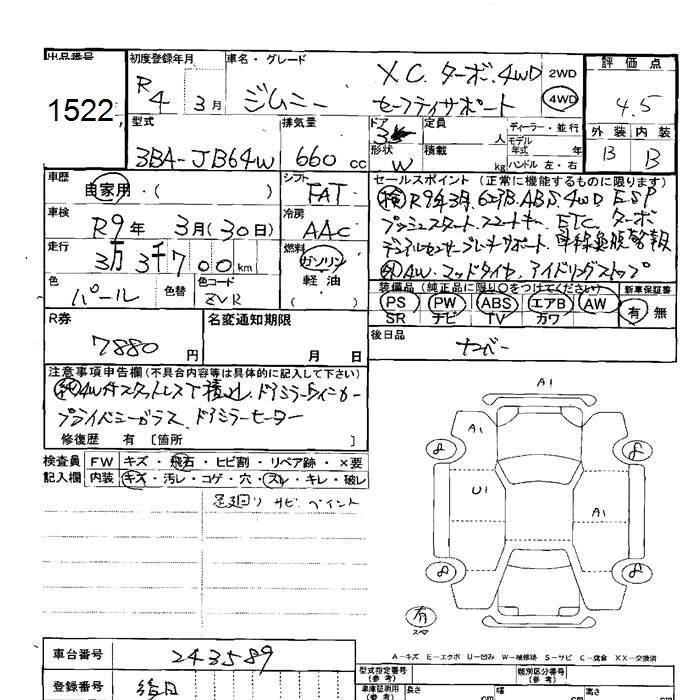 出品番号 初度登録年月 車名・グレード 評価点
1522 R4 3月 ジムニー XC ターボ 4WD 2WD 4WD 4.5
セーフティサポート
型式 排気量 ドア 定員 ディーラー・並行 外装 内装
3BA-JB64W 660cc 3 人 モデル年式 年 B B
形状 W 積載 kg ハンドル 左・右
車歴 自家用・( ) シフト FAT セールスポイント(正常に機能するものに限ります)
検 R9年3月 ABS 4WD ESP
車検 R9年3月(30日) 冷房 AAC プッシュスタート スマートキー ETC ターボ
走行 3万3千700km 燃料 ガソリン 軽油 デュアルセンサーブレーキサポート 車線逸脱警報
AW マッドタイヤ アイドリングストップ
色 パール 色替 色コード ZVR 装備品(純正品に限り○をつけてください) 新車保証書
PS PW ABS エアB AW 有 無
SR ナビ TV カワ
R券 名変通知期限 後日品
7880円 月 日 ナンバー
注意事項申告欄(不具合内容等は具体的に記入して下さい)
純 4W付スタッドレスT積込 ドアミラーウィンカー
プライバシーガラス ドアミラーヒーター
修復歴 有 [箇所 ]
検査員 FW キズ・飛石・ヒビ割・リペア跡・×要
記入欄 内装 キズ・汚レ・コゲ・穴・スレ・キレ・破レ
足廻り サビ ペイント
A1
A1
8 8
U1 A1
8 8
有
スペア
A-キズ E-エクボ U-凹み W-補修跡 S-サビ C-腐食 XX-交換済
車台番号 243589
登録番号 後日
型式指定番号(参考) 類別区分番号(参考)
車庫証明用(参考) 長さ cm 幅 cm 高さ cm